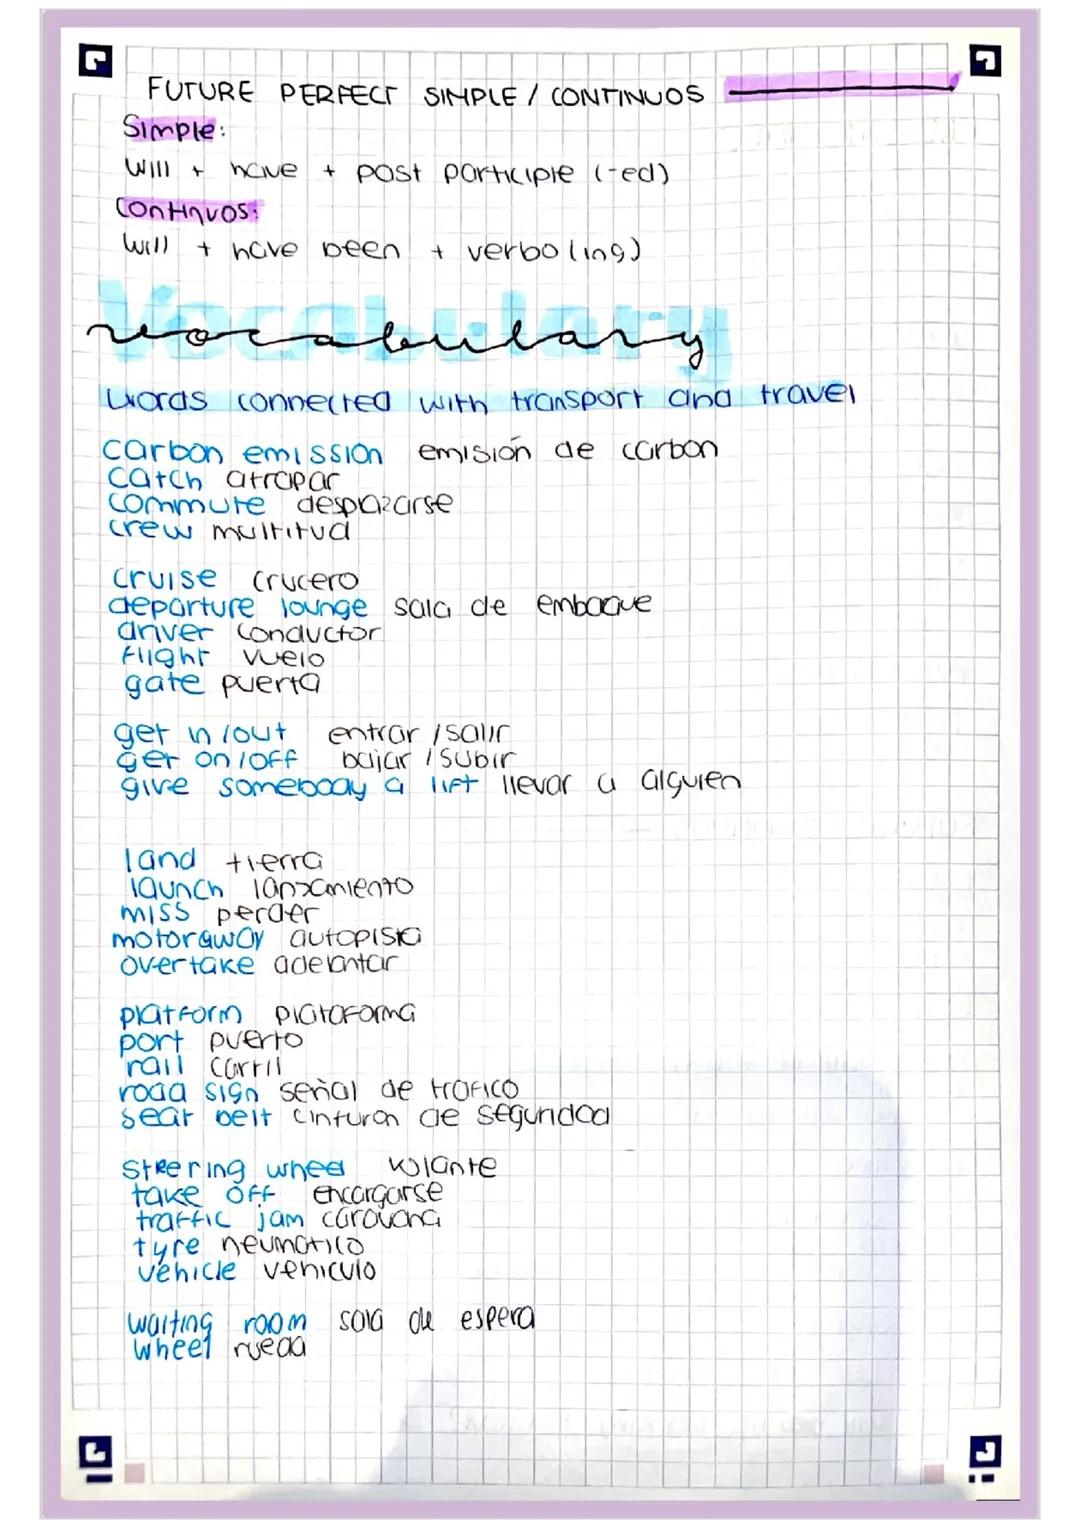 FUTURE PERFECT SIMPLE / CONTINUOS
Simple:
Will + have + past participle (-ed)
Continuos:
Will + have been + verbo (ing)
Vocabulary
vocabulary
Words connected with transport and travel
carbon emission emisión de carbon
catch atrapar
commute desplazarse
crew multitud
cruise crucero
departure lounge sala de embaque
driver conductor
flight vuelo
gate puerta
get in / out entrar / salir
get on / off bajar / subir
give somebody a lift llevar a alguien
land tierra
launch lanzamiento
miss perder
motoraway autopista
overtake adelantar
platform plataforma
port puerto
rail carril
road sign señal de trafico
seat belt cinturon de seguridad
steering wheel volante
take off encargarse
traffic jam caravana
tyre neumatico
vehicle vehiculo
waiting room sala de espera
wheel rueda